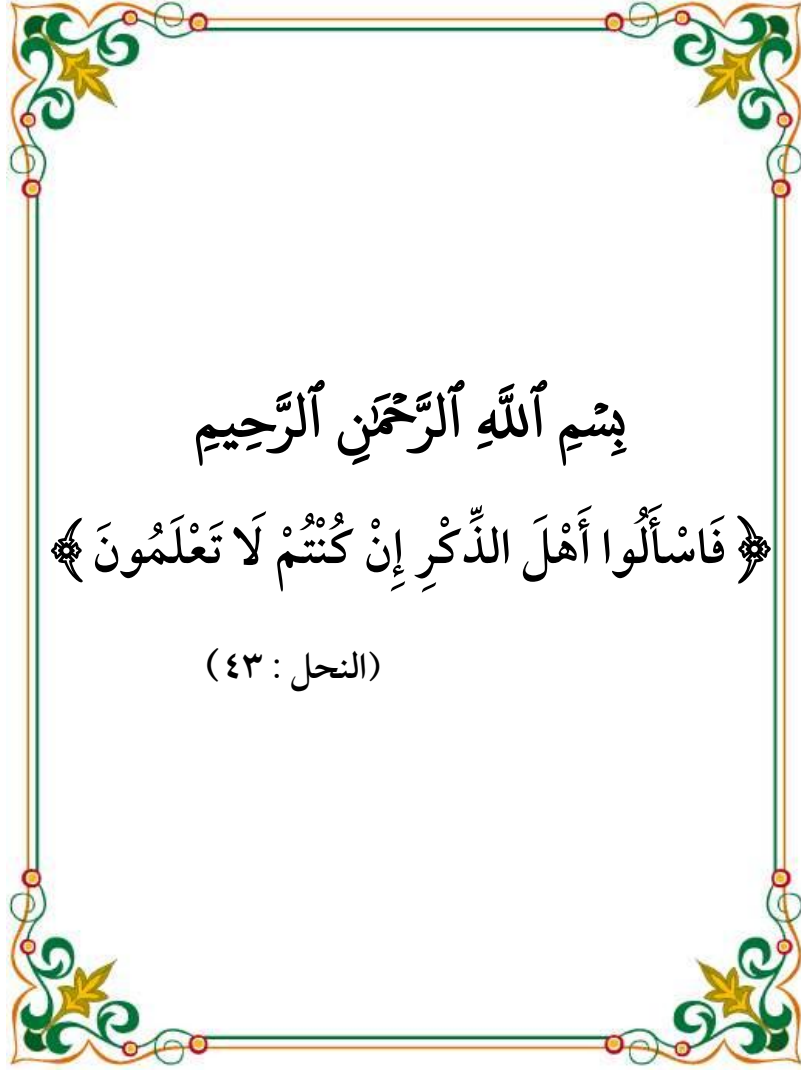 بِسْمِ ٱللَّهِ ٱلرَّحْمَٰنِ ٱلرَّحِيمِ
﴿ فَاسْأَلُوا أَهْلَ الذِّكْرِ إِنْ كُنْتُمْ لَا تَعْلَمُونَ ﴾
(النحل : ٤٣)